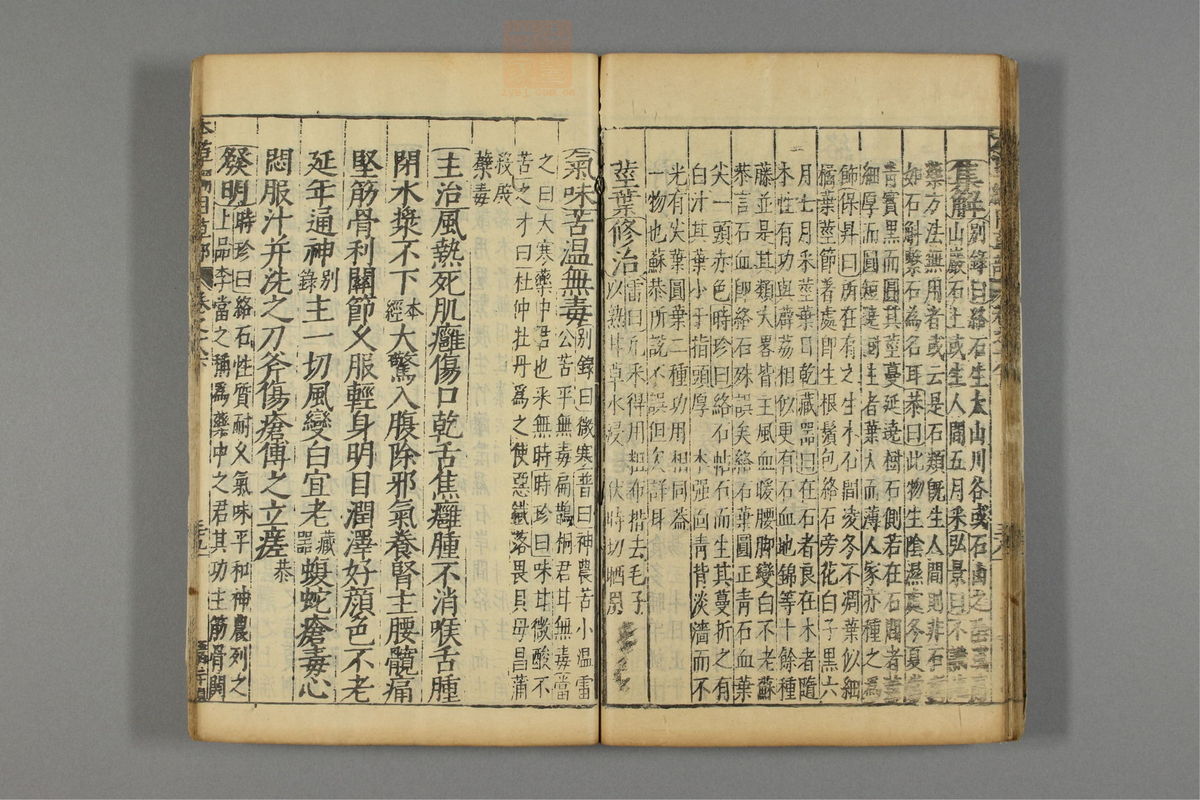 集解別錄曰絡石生太山川谷或石山之陰或高
山巖石上或生人間五月采弘景曰不識此
藥方法無用者或云是石類既生人間則非石當
如石斛繫石為名耳恭曰此物生陰濕處冬夏常
青實黑而圓其莖蔓延遶樹石側若在石間者葉
細厚而圓短遶樹生者葉大而薄人家亦種之為
飾保昇曰所在有之生木石間淩冬不凋葉似細
橘葉莖節著處即生根鬚包絡石旁花白子黑六
月七月采莖葉日乾藏器曰在石者良在木者隨
木性有功與薜荔相似更有石血地錦等十餘種
藤並是其類大畧皆主風血暖腰脚變白不老蘇
恭言石血即絡石殊誤矣絡石葉圓正青石血葉
尖一頭赤色時珍曰絡石帖石而生其蔓折之有
白汁其葉小于指頭厚木强面青背淡濇而不
光有尖葉圓葉二種功用相同葢
一物也蘇恭所說不誤但欠詳耳
莖葉修治雷曰凡采得用粗布揩去毛子
以熟甘草水浸一伏時切晒用
氣味苦溫無毒别錄曰微寒普曰神農苦小溫雷
公苦平無毒扁鵲桐君甘無毒當
之曰大寒藥中君也采無時時珍曰味甘微酸不
苦之才曰杜仲牡丹爲之使惡鐵落畏貝母昌蒲
殺殷
孽毒
主治風熱死肌癰傷口乾舌焦癰腫不消喉舌腫
閉水漿不下本經大驚入腹除邪氣養腎主腰髖痛
堅筋骨利關節久服輕身明目潤澤好顏色不老
延年通神别錄主一切風變白宜老藏器蝮蛇瘡毒心
悶服汁并洗之刀斧傷瘡傅之立瘥恭
發明時珍曰絡石性質耐久氣味平和神農列之
上品李當之稱爲藥中之君其功主筋骨關